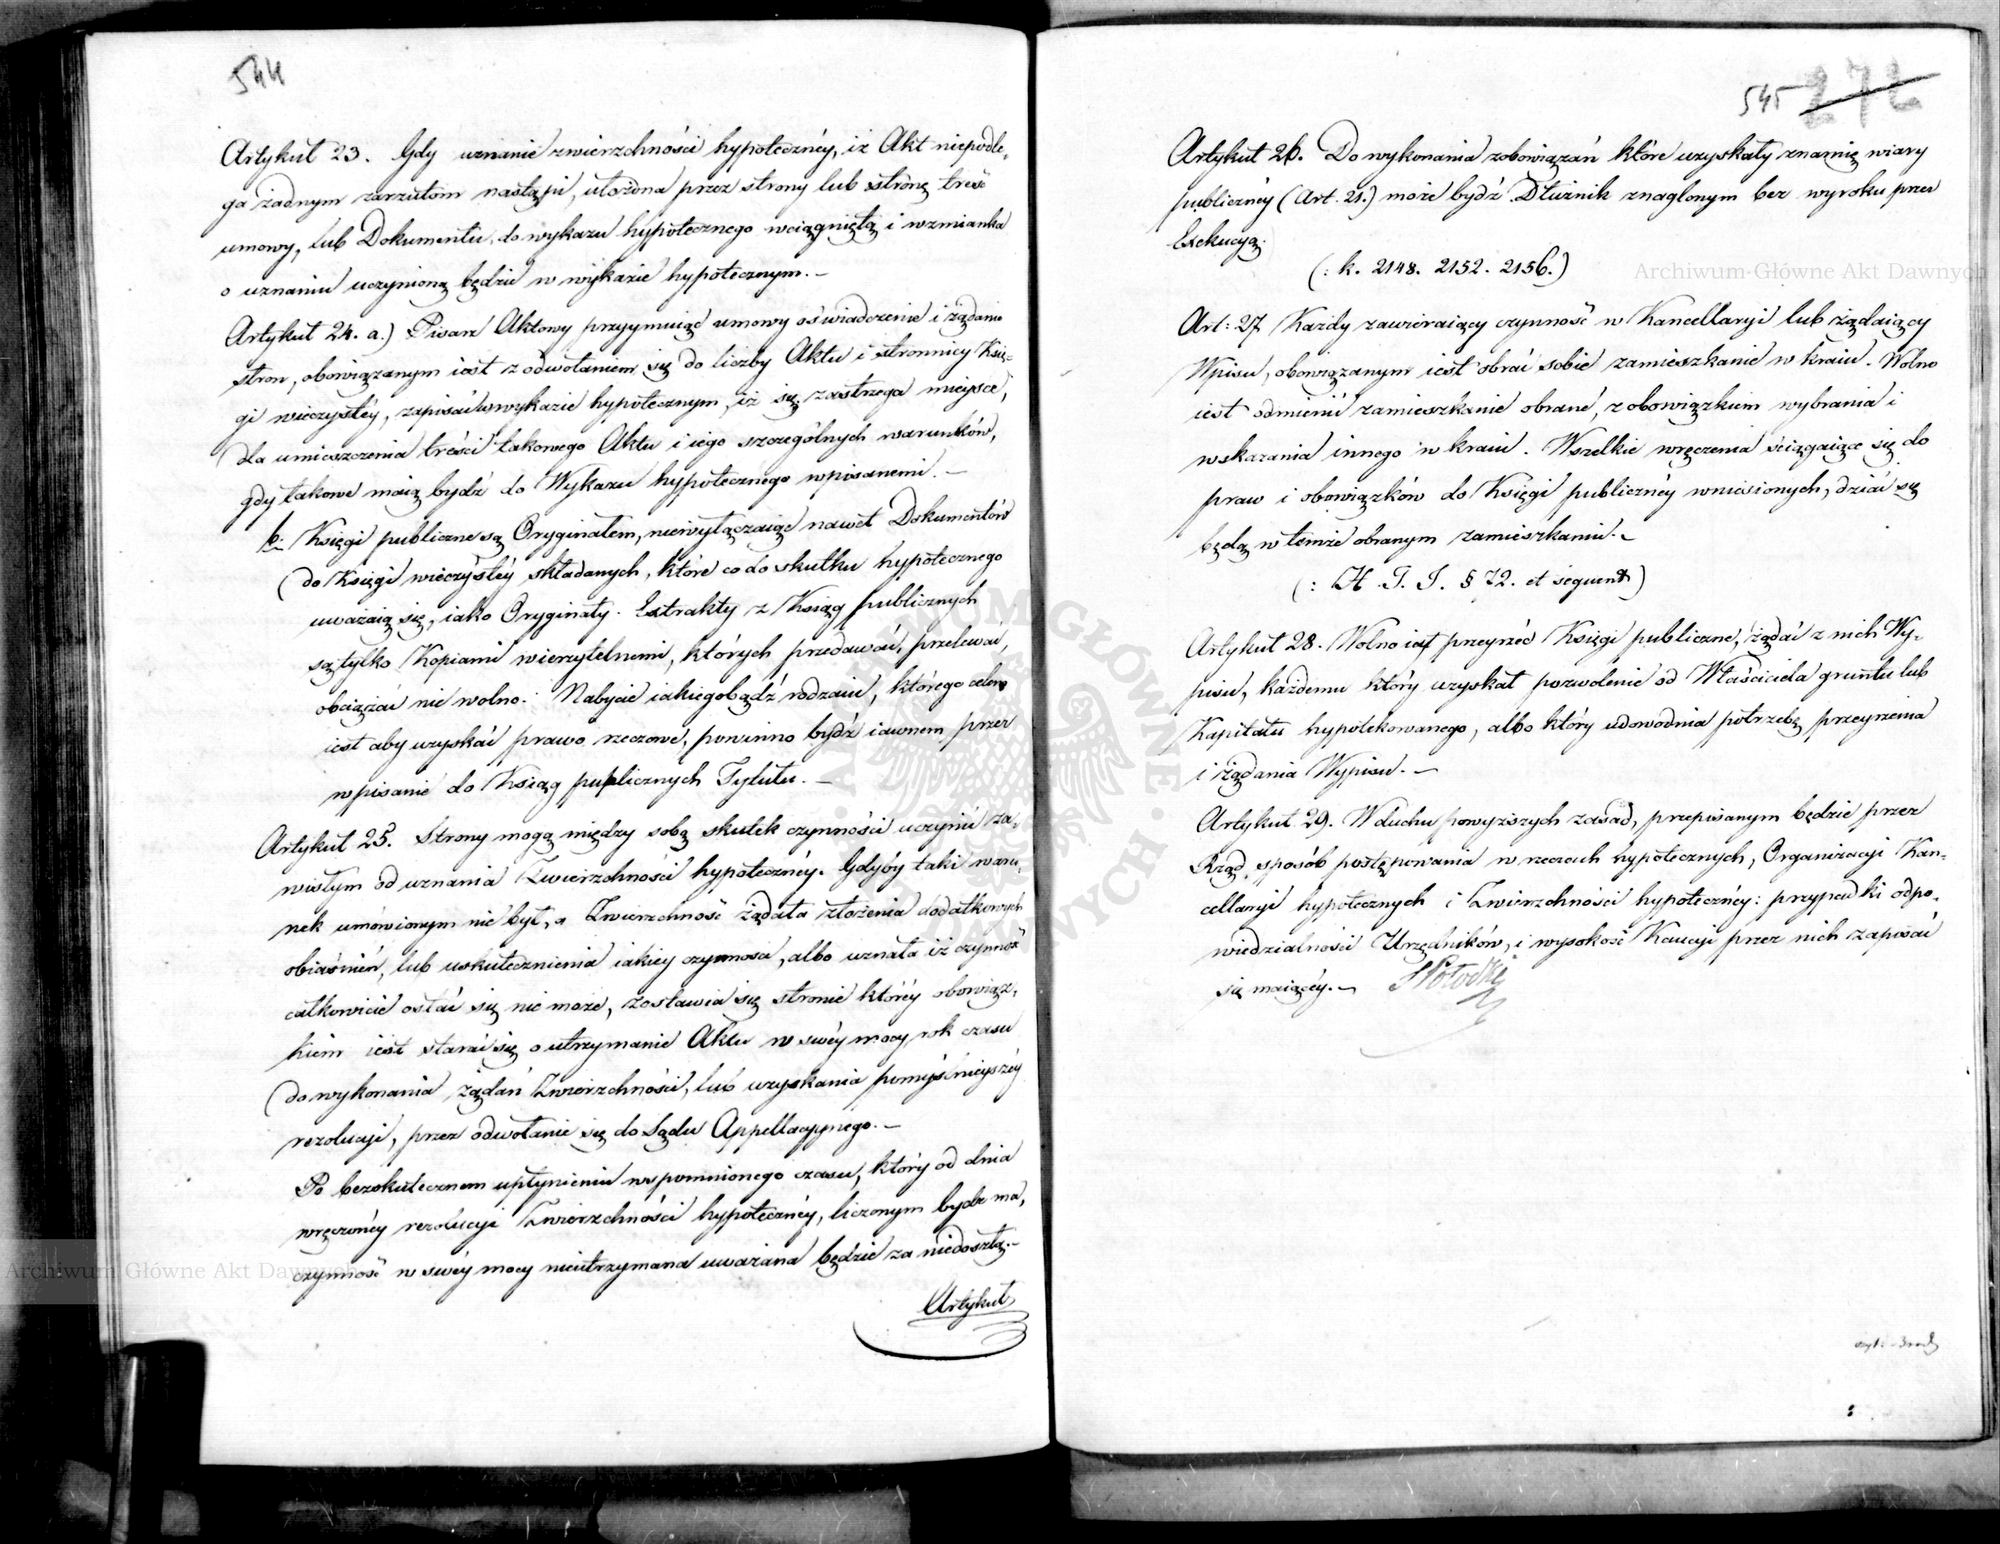 544
Artykuł 23. Gdy uznanie zwierzchności hypotecznéy, iż Akt niepodle-
ga żadnym zarzutom nastąpi, ułożona przez strony lub stronę treść
umowy, lub Dokumentu, do wykazu hypotecznego wciągniętą i wzmianka
o uznaniu uczynioną będzie w wykazie hypotecznym.-
Artykuł 24. a.) Pisarz Aktowy przyymuiąc umowy oświadczenie i żądanie
stron, obowiązanym iest z odwołaniem się do liczby Aktu i stronnicy Xię-
gi wieczystéy, zapisać w wykazie hypotecznym, iż się zastrzega mieysce,
dla umieszczenia treści takowego Aktu i iego szczególnych warunków,
gdy takowe maią bydź do Wykazu hypotecznego wpisanemi.-
b. Księgi publiczne są Oryginałem, niewyłączaiąc nawet Dokumentów
do Księgi wieczystéy składanych, które co do skutku hypotecznego
uważaią się, iako Oryginały. Extrakty z Ksiąg publicznych
są tylko Kopiami wierzytelnemi, których przedawać, przelewać,
obciążać nie wolno. Nabycie iakiegobądź rodzaiu, którego celem
iest aby uzyskać prawo rzeczowe, powinno bydź iawnem przez
wpisanie do Ksiąg publicznych Tytułu.-
Artykuł 25. Strony mogą między sobą skutek czynności uczynić za-
wisłym od uznania Zwierzchności hypotecznéy. Gdyby taki waru-
nek umówionym nie był, a Zwierzchność żądała złożenia dodatkowych
obiaśnień, lub uskutecznienia iakiey czynności, albo uznała iż czynność
całkowicie ostać się nie może, zostawia się stronie któréy obowiąz-
kiem iest starać się o utrzymanie Aktu w swéy mocy, rok czasu
do wykonania żądań Zwierzchności, lub uzyskania pomyślnieyszéy
rezolucyi, przez odwołanie się do Sądu Appellacyynego.-
Po bezskutecznem upłynieniu wspomnionego czasu, który od dnia
wręczonéy rezolucyi Zwierzchności hypotecznéy, liczonym bydź ma,
czynność w swéy mocy nieutrzymana uważana będzie za niedoszłą.-
Artykuł
545 272
Artykuł 26. Do wykonania zobowiązań które uzyskały znamię wiary
publicznéy (Art. 21.) może bydź Dłużnik znaglonym bez wyroku przez
Exekucyą.
(: k. 2148. 2152. 2156.)
Art: 27 Każdy zawieraiący czynność w Kancellaryi lub żądaiący
Wpisu, obowiązanym iest obrać sobie zamieszkanie w kraiu. Wolno
iest odmienić zamieszkanie obrane, z obowiązkiem wybrania i
wskazania innego w kraiu. Wszelkie wręczenia ściągaiące się do
praw i obowiązków do Księgi publicznéy wniesionych, dziać się
będą w temże obranym zamieszkaniu.-
(: H. T. I. § 72. et sequent)
Artykuł 28. Wolno iest przeyrzéć Księgi publiczne, żądać z nich Wy-
pisu, każdemu który uzyskał pozwolenie od Właściciela gruntu lub
Kapitału hypotekowanego, albo który udowodnia potrzebę przeyrzenia
i żądania Wypisu.-
Artykuł 29. W duchu powyższych zasad, przepisanym będzie przez
Rząd, sposób postępowania w rzeczach hypotecznych, Organizacyi Kan-
cellaryi hypotecznych i Zwierzchności hypotecznéy: przypadki odpo-
wiedzialności Urzędników, i wysokość Kaucyi przez nich zapisać
się maiącéy.- S Potocki
Archiwum Główne Akt Dawnych
Archiwum Główne Akt Dawnych
ARCHIWUM GŁÓWNE AKT DAWNYCH